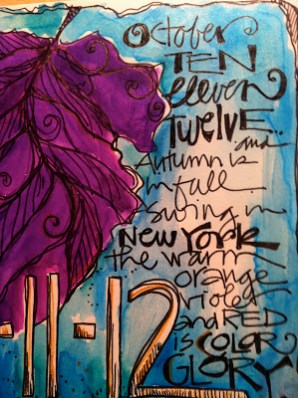 October
TEN
eleven
TWELVE and
Autumn is
in full
swing in
NEW YORK
the warm
orange
violet
and RED
is COLOR
GLORY
-11-12